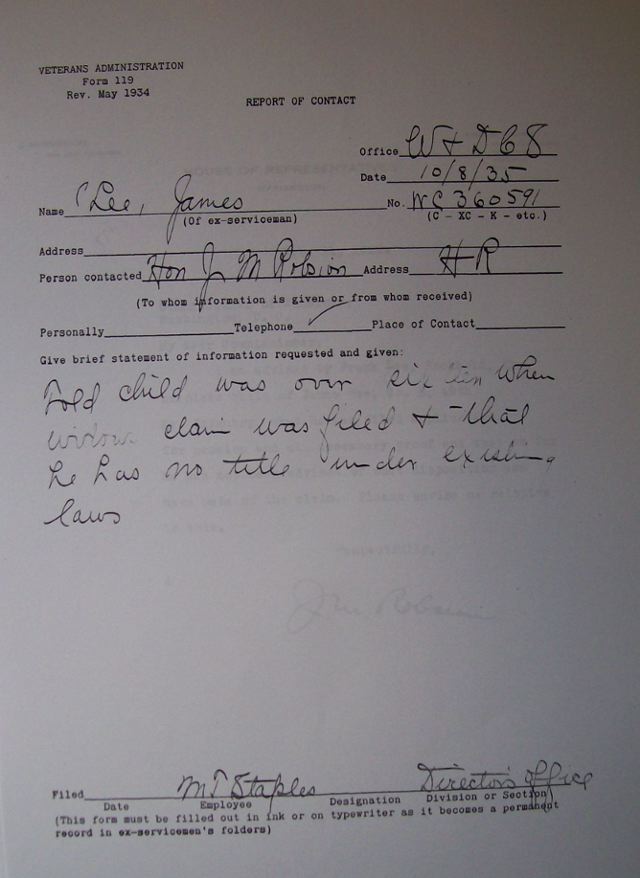 VETERANS ADMINISTRATION
Form 119
Rev. May 1934
REPORT OF CONTACT
Office W + D C 8
Date 10/8/35
Name Lee, James No. WC 360591
(Of ex-serviceman) (C - XC - K - etc.)
Address
Person contacted Hon J M Robsion Address H R
(To whom information is given or from whom received)
Personally Telephone ✓ Place of Contact
Give brief statement of information requested and given:
Told child was over sixteen when
widow claim was filed + that
he has no title under existing
laws
J M Robsion
Filed M T Staples Director's Office
Date Employee Designation Division or Section
(This form must be filled out in ink or on typewriter as it becomes a permanent
record in ex-servicemen's folders)